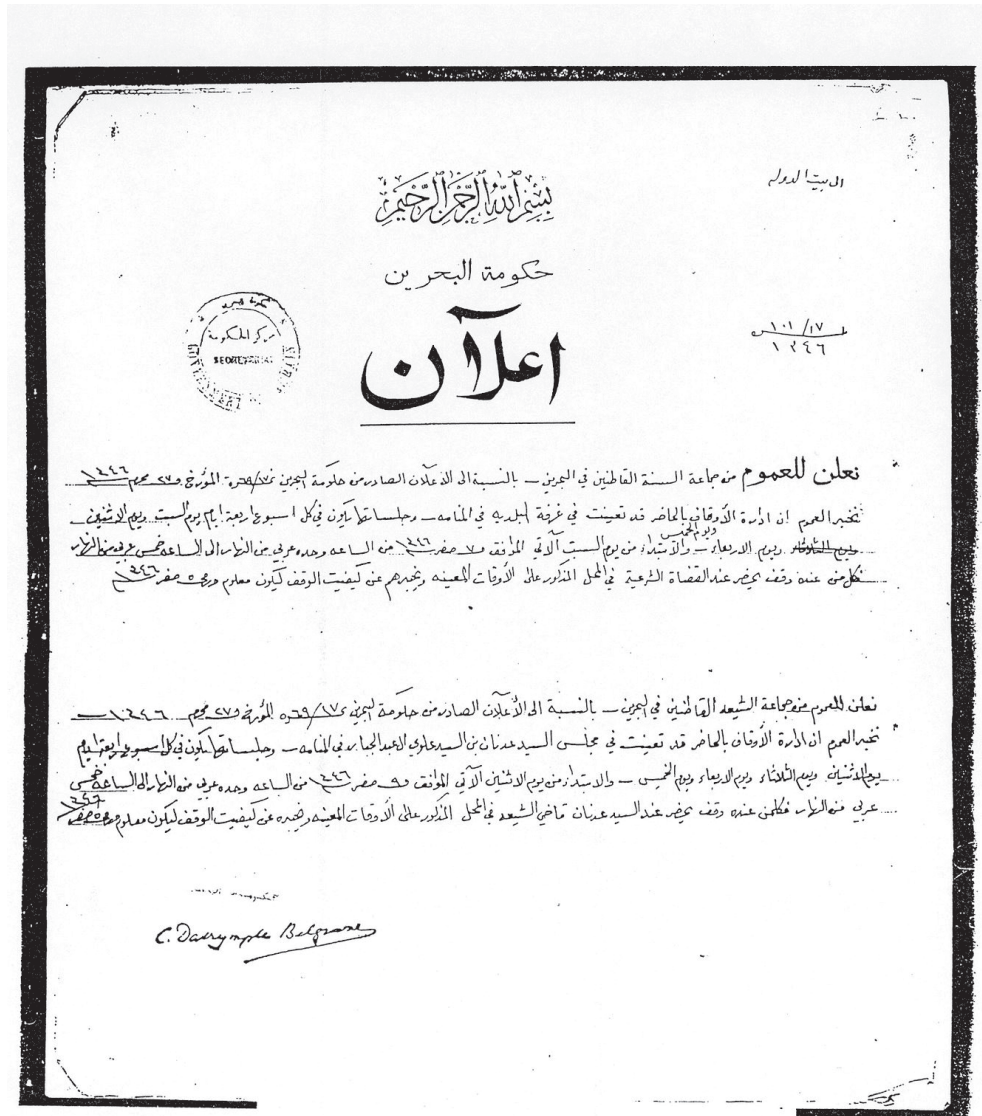 الى بيت الدوله
بسم الله الرحمن الرحيم
حكومة البحرين
اعلآن
١٧/١٠١
١٣٤٦
مركز الحكومة
SECRETARIAT
نعلن للعموم من جماعة السنة القاطنين في البحرين – بالنسبة الى الاعلان الصادر من حكومة البحرين نمرة ٦٩/١٧ المؤرخ ٢٧ محرم ١٣٤٦
نخبر العموم ان ادارة الأوقاف بالحاضر قد تعينت في غرفة البلديه في المنامه – وجلساتها يكون في كل اسبوع اربعة ايام يوم السبت ويوم الاثنين –
ويوم الخميس
ويوم الثلاثاء ويوم الاربعاء – والأبتداء من يوم السبت الآتي الموافق ٧ صفر ١٣٤٦ من الساعه وحده عربي من النهار الى الساعه خمس عربي من النهار
فكل من عنده وقف يحضر عند القضاة الشرعية في المحل المذكور على الأوقات المعينه ويخبرهم عن كيفيت الوقف ليكون معلوم ٥ صفر ١٣٤٦
نعلن للعموم من جماعة الشيعه القاطنين في البحرين – بالنسبة الى الأعلان الصادر من حكومة البحرين نمرة ٦٩/١٧ المؤرخ ٢٧ محرم ١٣٤٦
نخبر العموم ان ادارة الأوقاف بالحاضر قد تعينت في مجلس السيد عدنان بن السيد علوي العبد الجبار في المنامه – وجلساتها يكون في كل اسبوع اربعة ايام
يوم الاثنين ويوم الثلاثاء ويوم الاربعاء ويوم الخميس – والابتداء من يوم الاثنين الآتي الموافق ٩ صفر ١٣٤٦ من الساعه وحده عربي من النهار الى الساعه خمس
عربي من النهار فكلمن عنده وقف يحضر عند السيد عدنان قاضي الشيعه في المحل المذكور على الأوقات المعينه ويخبره عن كيفيت الوقف ليكون معلوم ٥ صفر ١٣٤٦
C. Dalrymple Belgrave